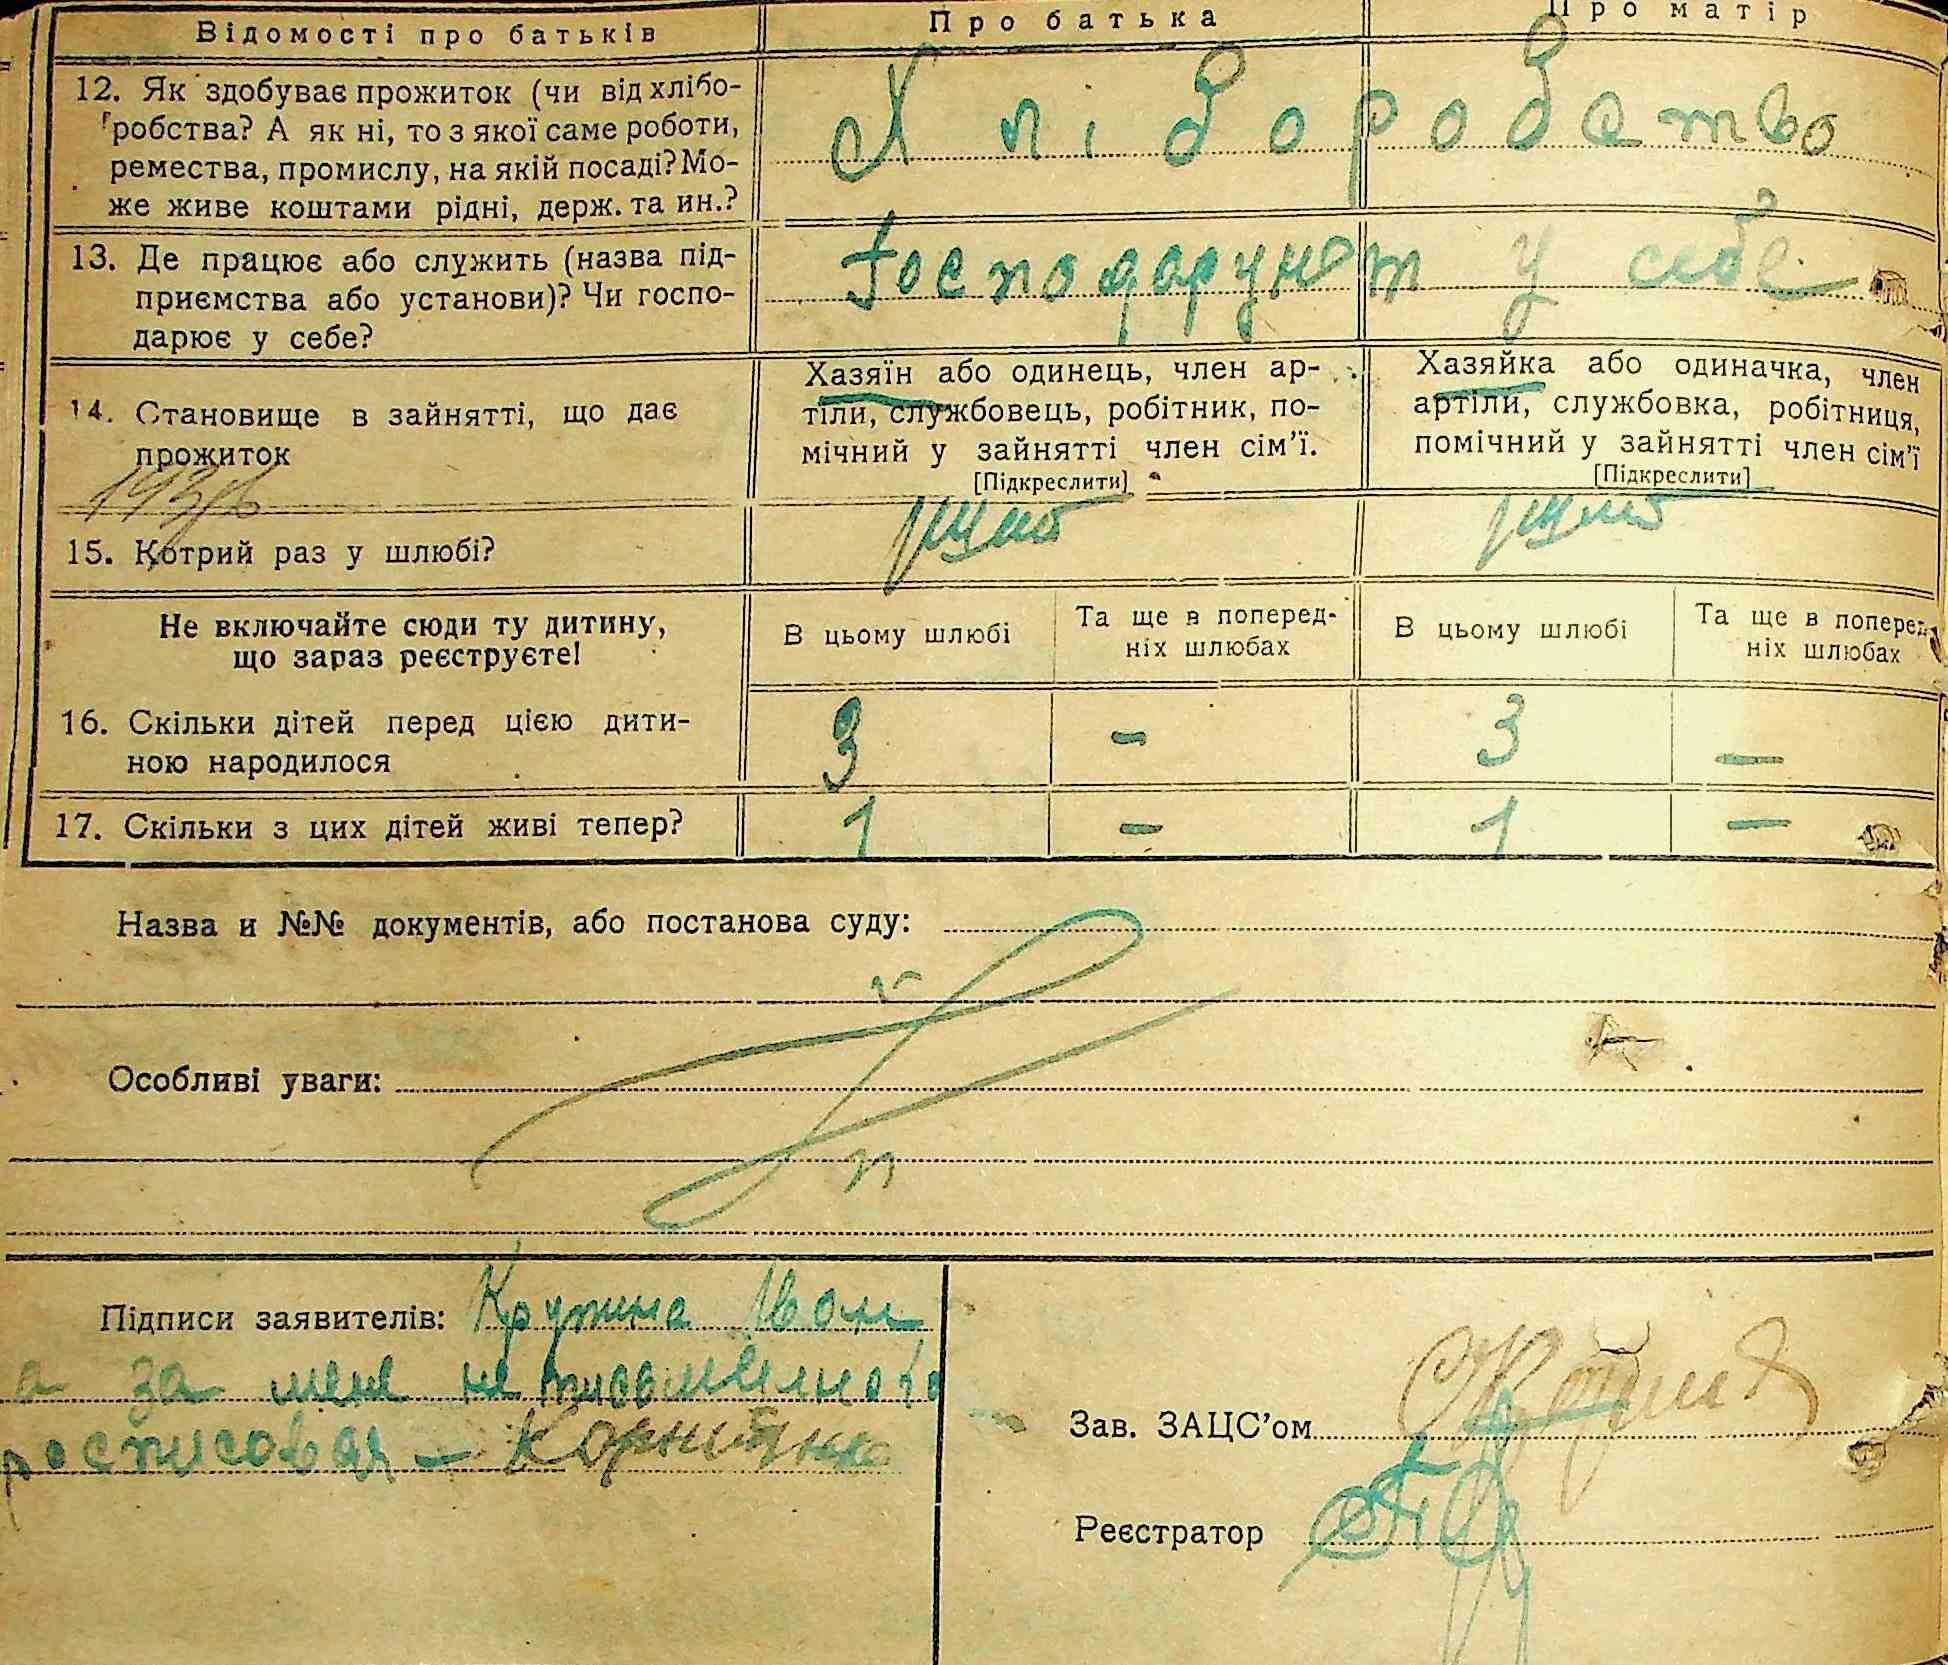 Відомості про батьків Про батька Про матір
12. Як здобуває прожиток (чи від хлібо-
робства? А як ні, то з якої саме роботи,
ремества, промислу, на якій посаді? Мо-
же живе коштами рідні, держ. та ин.?
Хліборобство
13. Де працює або служить (назва під-
приємства або установи)? Чи госпо-
дарює у себе?
Господарует у себе
14. Становище в зайнятті, що дає
прожиток
Хазяїн або одинець, член ар-
тіли, службовець, робітник, по-
мічний у зайнятті член сім'ї.
[Підкреслити]
Хазяйка або одиначка, член
артіли, службовка, робітниця,
помічний у зайнятті член сім'ї
[Підкреслити]
15. Котрий раз у шлюбі?
Не включайте сюди ту дитину,
що зараз реєструєте!
В цьому шлюбі
Та ще в поперед-
ніх шлюбах
В цьому шлюбі
Та ще в поперед-
ніх шлюбах
16. Скільки дітей перед цією дити-
ною народилося
3 - 3 -
17. Скільки з цих дітей живі тепер?
1 - 1 -
Назва и №№ документів, або постанова суду:
Особливі уваги:
Підписи заявителів:
а за мене неписьменного
росписовая -
Зав. ЗАЦС'ом
Реєстратор